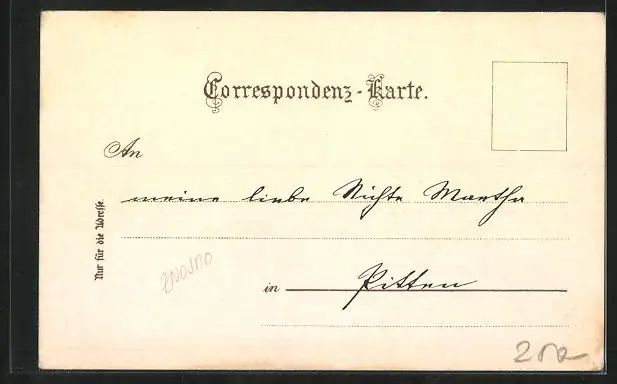 Correspondenz-Karte.
An
meine liebe Nichte Martha
Nur für die Adresse.
in Pitten
ZNOJMO